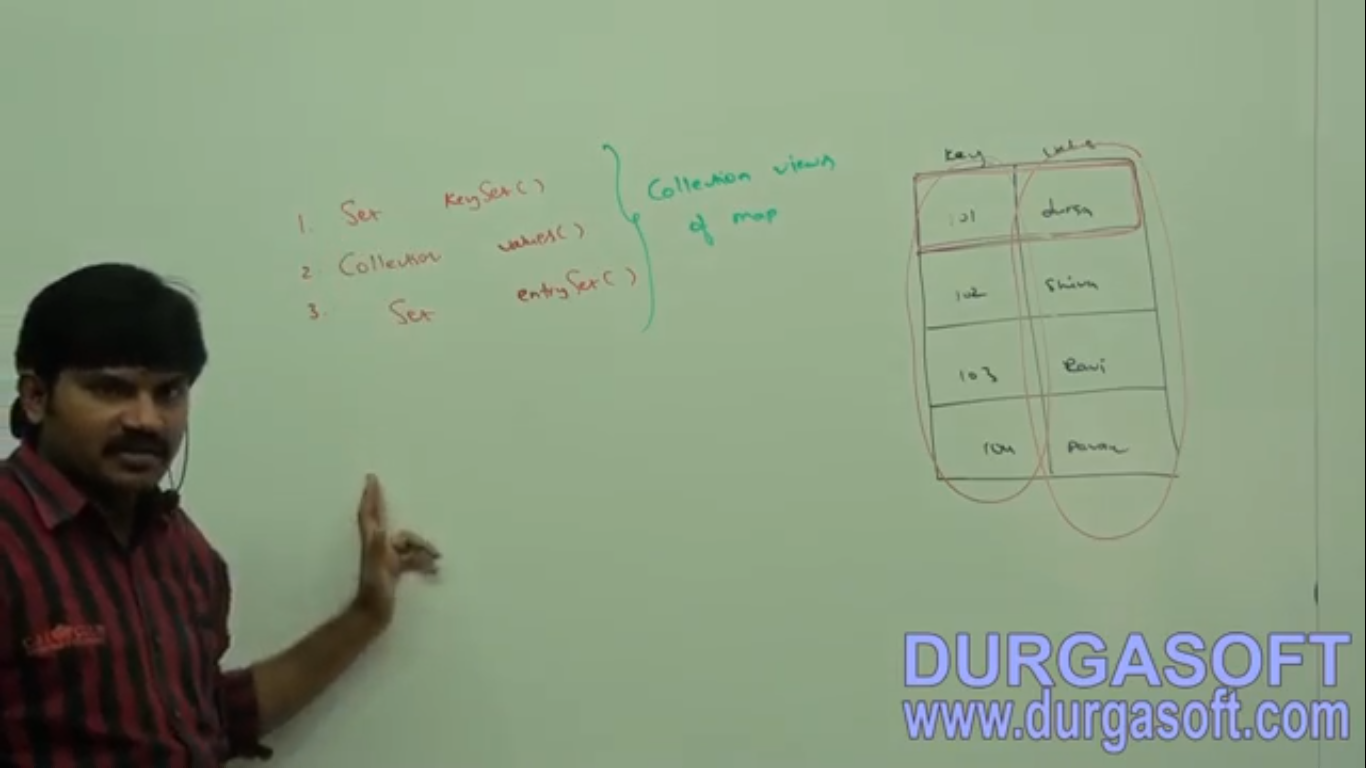 1. Set keySet()
2. Collection values()
3. Set entrySet()
Collection views
of map
key value
101 durga
102 Shiva
103 Ravi
104 Pavan
DURGASOFT
www.durgasoft.com